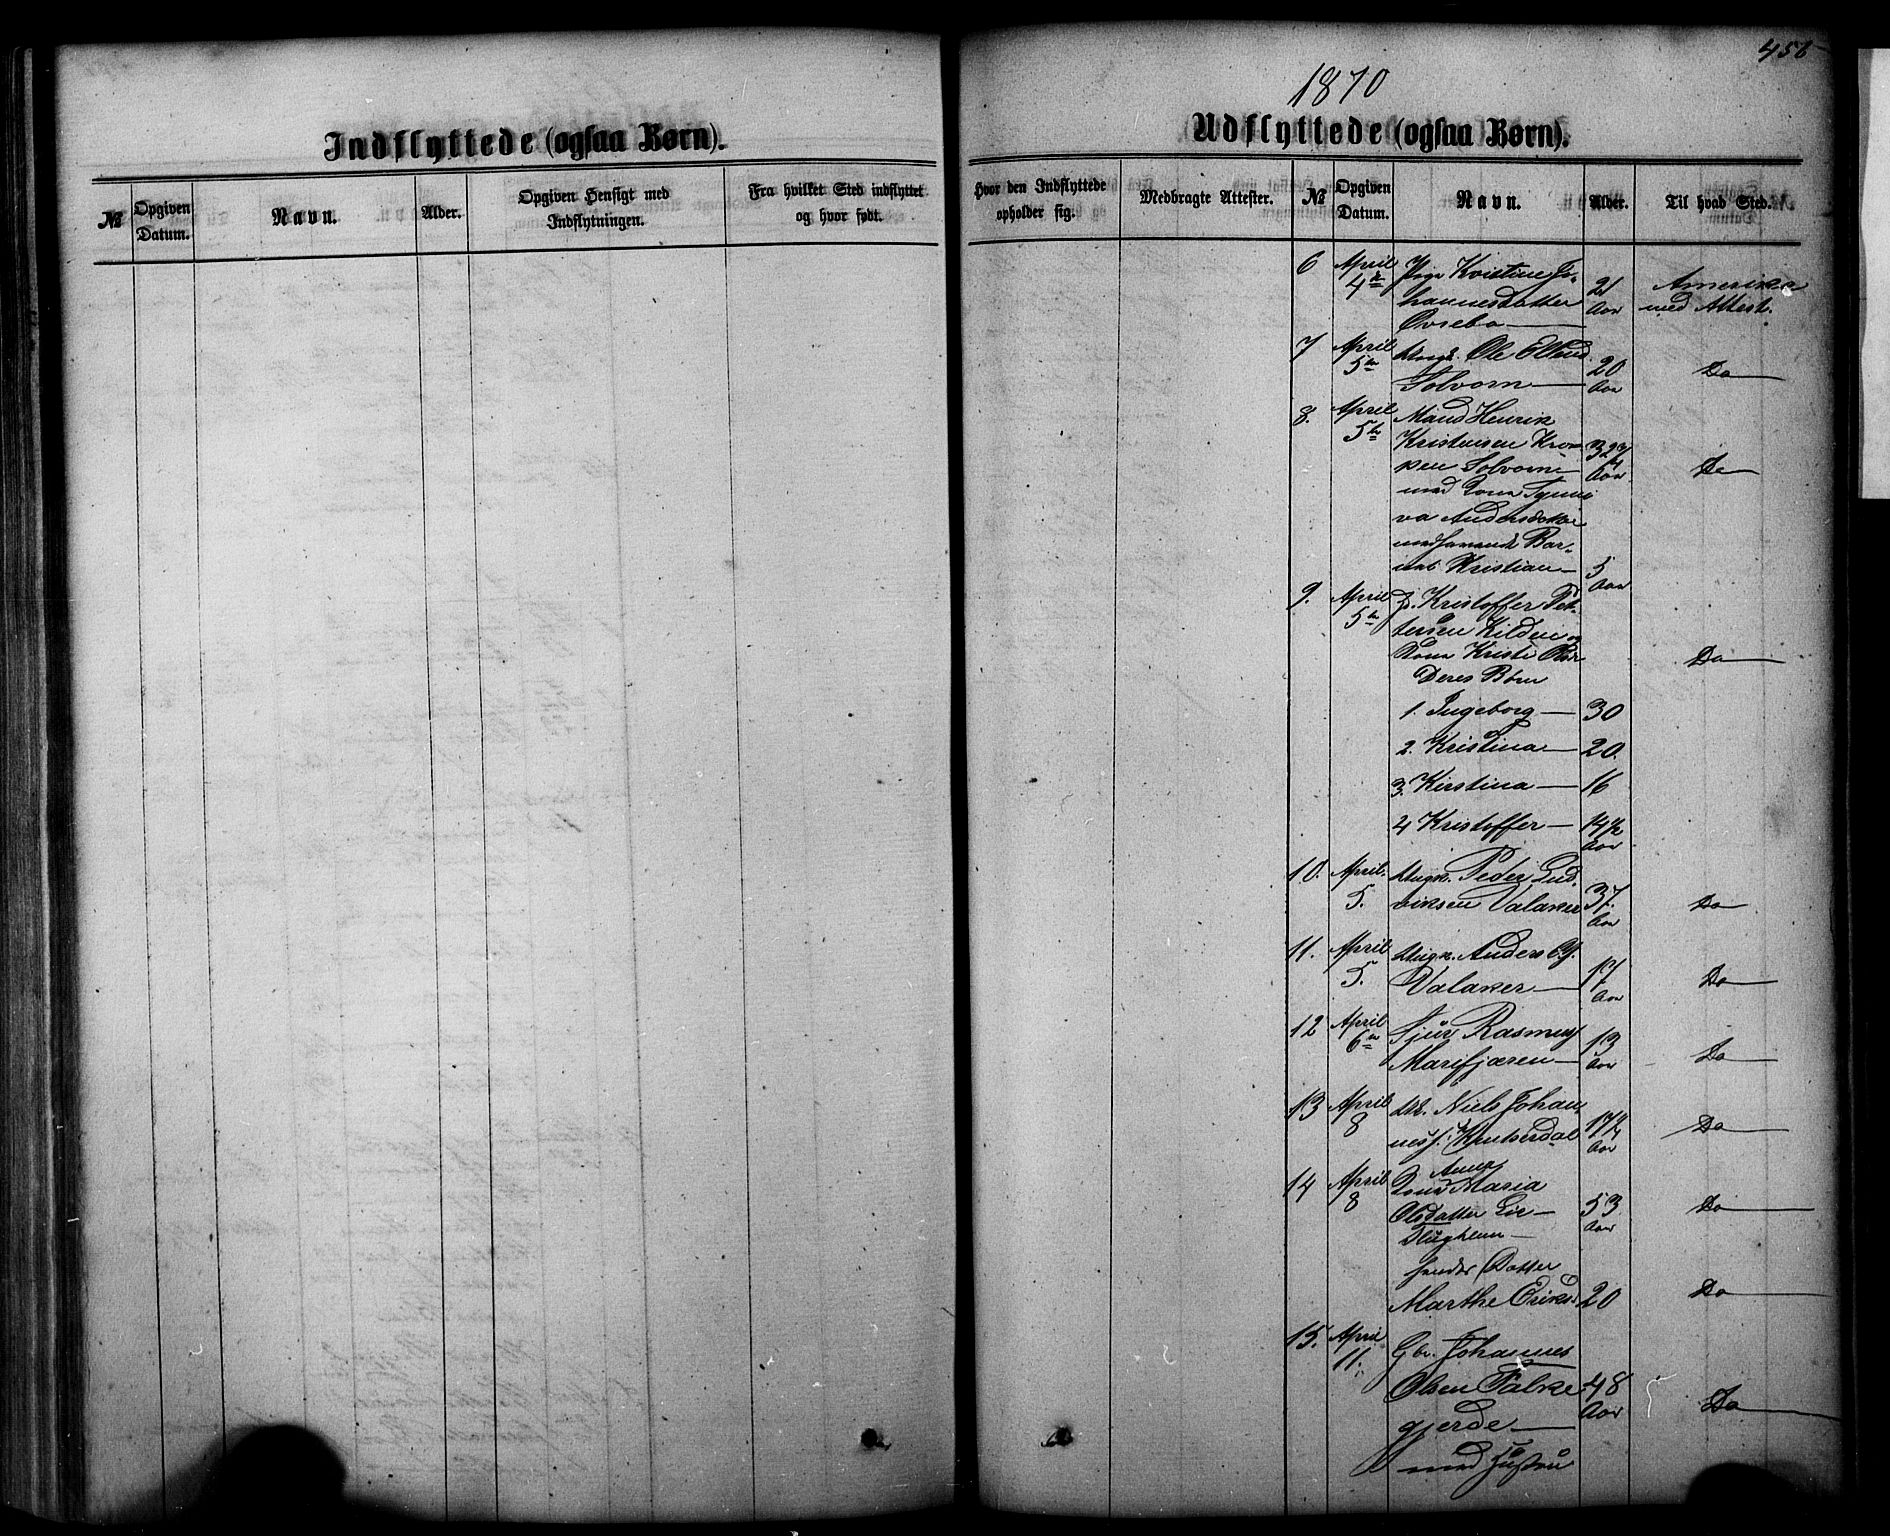 456
1870
Indflyttede (ogsaa Børn).
Udflyttede (ogsaa Børn).
№ Opgiven Datum. Navn. Alder. Opgiven Hensigt med Indflytningen. Fra hvilket Sted indflyttet og hvor født.
Hvor den Indflyttede opholder sig. Medbragte Attester. № Opgiven Datum. Navn. Alder. Til hvad Sted.
6 April Pige Kristine Jo-
4de hannesdatter 21 Amerika
Øvrebo Aar med Attest.
7 April Ungk. Ole Ellend
5te Solvorn 20 Do
Aar
8. April Mand Henrik
5te Kristensen Kro-
ken Solvorn 32 Do
med Kona Synne- Aar
va Andersdotter
medhavende Bar-
net Kristian 5
Aar
9. April Kristoffer Pet-
5te tersen Kilden og
Kona Kristi Do
Deres Børn
1. Ingeborg 30
2. Kristina 20
3. Kirstina 16
4 Kristoffer 14½
Aar
10. April. Ungk. Peder Lud-
5. viksen Valaker 37.
Aar Do
11. April Ungk. Anders
5. Valaker 17 Do
Aar
12 April Sjur Rasmus
6te Marifjæren 13 Do
Aar
13 April Niels Johan
8 ness. Kvitserdal 17½ Do
Aar
14 April Anna
8 Kona Maria
Olsdatter Lie 53 Do
Aar
Dotter
Marthe Eriksd 20 Do
15. April Gbr. Johannes
11. Olsen Falke 48
gjerde Aar Do
med Hustru